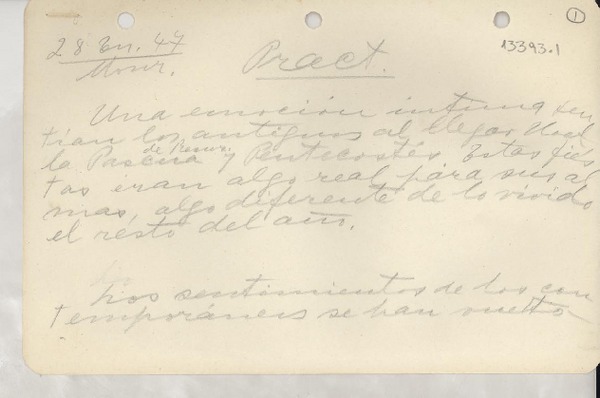 1
13393.1
28 En. 47
Monr.
Pract.
Una emoción íntima sen
tían los antiguos al llegar Noel
la Pascua de Resur. y Pentecostés. Estas fies
tas eran algo real para sus al
mas, algo diferente de lo vivido
el resto del año.
Los sentimientos de los con
temporáneos se han vuelto